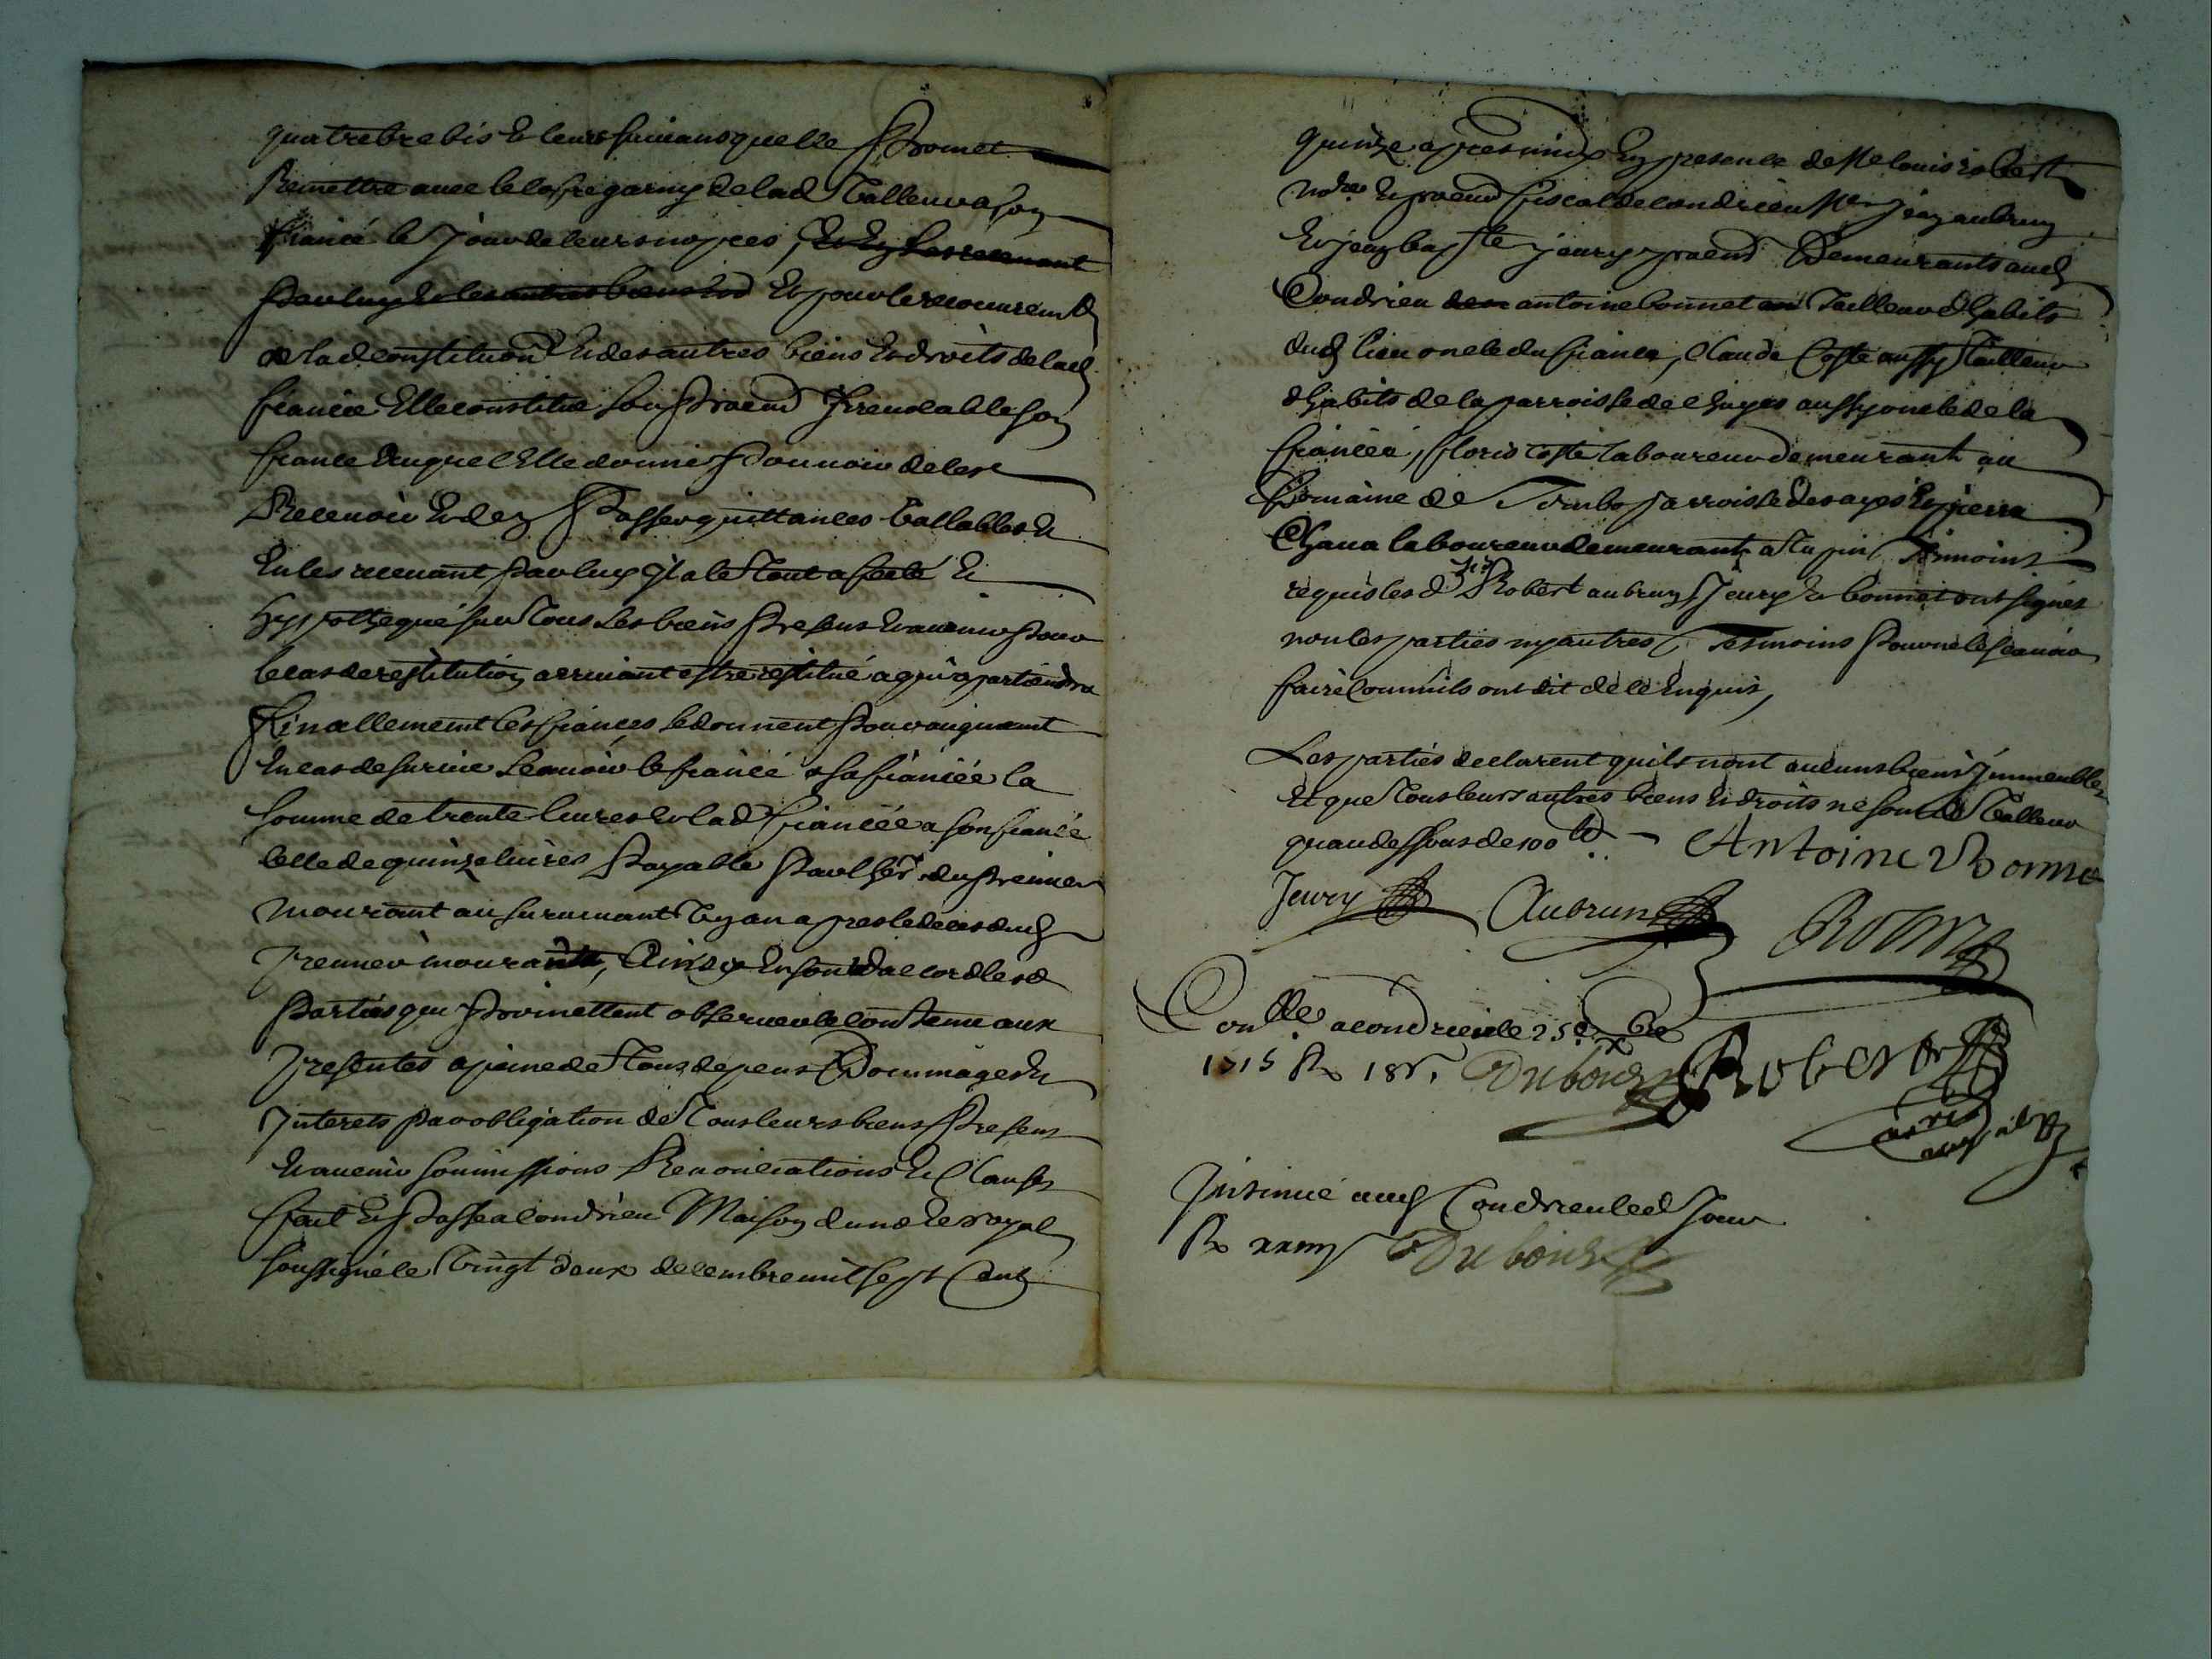 quatre brebis et leurs suivans quelle promet
Remettre avec le coffre garny de lad valleur a son
fiancé le jour de leurs nopces, et en les recevant
par luy et les autres biens et et pour le recouvremt
de lad constitution et des autres biens et droits de lad
fiancée Elle constitue son procur irrevocable son
fiancé auquel Elle donne pouvoir de les
Recevoir et den passer quittances vallables et
En les recevant par luy il a le tout affecté et
hyppothequé sur tous ses biens presens et avenir pour
le cas de restitution arrivant estre restitué a qui apartiendra
finallement les fiances se donnent pour augment
En cas de survie sçavoir le fiancé a sa fiancée la
somme de trente livres et lad fiancée a son fiancé
celle de quinze livres payable par lher du premier
mourant au survivant un an apres le deces dud
premier mourant, Ainsy en sont d'accord lesd
parties qui promettent observer le contenu aux
presentes a peine de tous depens Dommages et
Interets par obligation de tous leurs biens presens
et avenir soumissions Renonciations et clauses
fait et passé a Condrieu Maison du no.re royal
soussigné le vingt deux decembre mil sept cent
quinze apres midy En presence de Me louis robert
no.re et procur fiscal de Condrieu Me jean aubrun
et jean bap.te jeury procur Demeurants aud
Condrieu antoine bonnet tailleur d'habits
dud lieu oncle du fiancé, Claude Coste aussy tailleur
d'habits de la parroisse de aussy oncle de la
fiancée, floris coste laboureur demeurant au
Domaine de parroisse des ayes et pierre
laboureur demeurant a tupin temoins
requis les d Srs Robert aubrun Jeury et bonnet ont signés
non les parties ny autres temoins pour ne le sçavoir
faire comm'ils ont dit de ce enquis,
Les parties declarent quils n'ont aucuns biens immeubles
et que tous leurs autres biens et droits ne sont de valleur
quau dessous de 100 lt
Antoine Bonnet
Jeury Aubrun
Con.lle a Condrieu le 25e Xbre
1715 Rx 18s. Dubourg Robert
Insinué aud Condrieu led Jour
Rx Dubourg